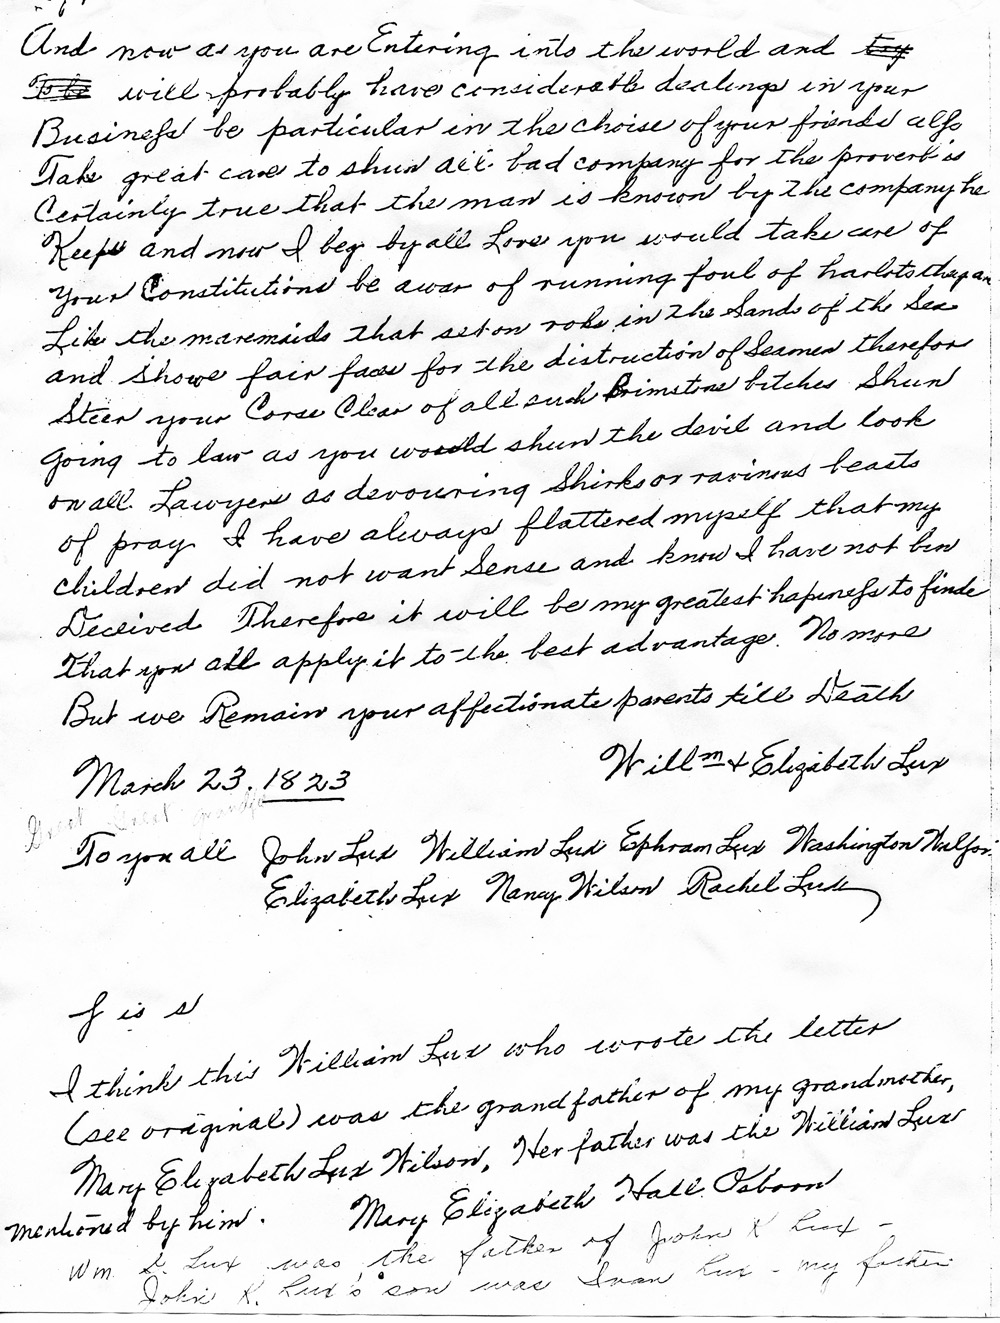 And now as you are Entering into the world and try
To be will probably have considerable dealings in your
Business be particular in the choise of your friends also
Take great care to shun all bad company for the proverb is
Certainly true that the man is known by the company he
Keeps and now I beg by all Love you would take care of
your Constitutions be awar of running foul of harlots they are
Like the maremaids that set on roks in the Sands of the Sea
and showe fair faces for the distruction of Seamen therefor
Steer your Corse Clear of all such Brimstone bitches Shun
going to law as you would shun the devil and look
on all Lawyers as devouring Shirks or ravinius beasts
of pray I have always flattered myself that my
children did not want Sense and know I have not bin
Deceived Therefore it will be my greatest hapiness to finde
That you all apply it to the best advantage. No more
But we Remain your affectionate parents till Death
Willm & Elizabeth Lux
March 23. 1823
Great Great grandpa
To you all John Lux William Lux Ephram Lux Washington
Elizabeth Lux Nancy Wilson Rachel Lux
ʃ is s
I think this William Lux who wrote the letter
(see original) was the grandfather of my grandmother,
Mary Elizabeth Lux Wilson. Her father was the William Lux
mentioned by him. Mary Elizabeth Hall Osborn
Wm. S. Lux was the father of John K Lux -
John K. Lux's son was Ivan Lux - my father